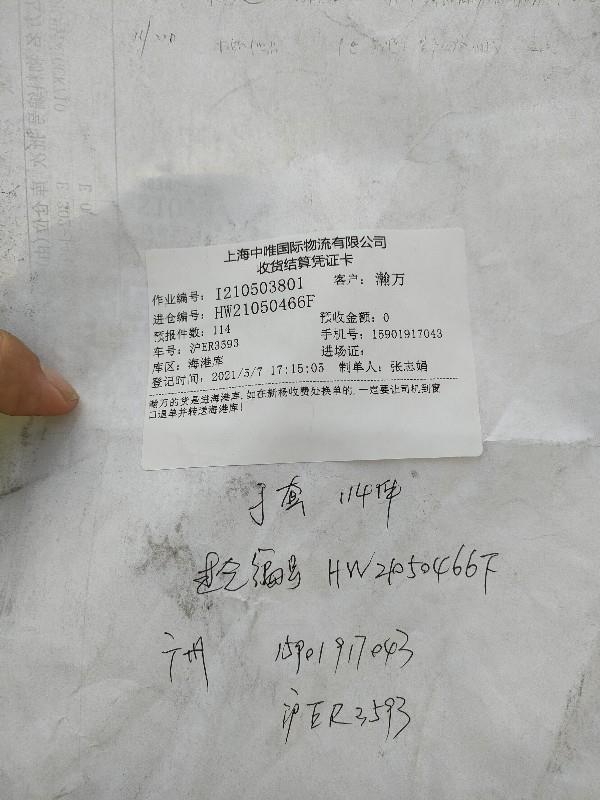 上海中唯国际物流有限公司
收货结算凭证卡
作业编号: I210503801 客户: 瀚万
进仓编号: HW21050466F
预报件数: 114 预收金额: 0
车号: 沪ER3593 手机号: 15901917043
库区: 海港库 进场证:
登记时间: 2021/5/7 17:15:05 制单人: 张志娟
瀚万的货是进海港库,如在新杨收费处换单的,一定要让司机到窗
口退单并转送海港库!
手套 114件
进仓编号 HW21050466F
广州 15901917043
沪ER3593